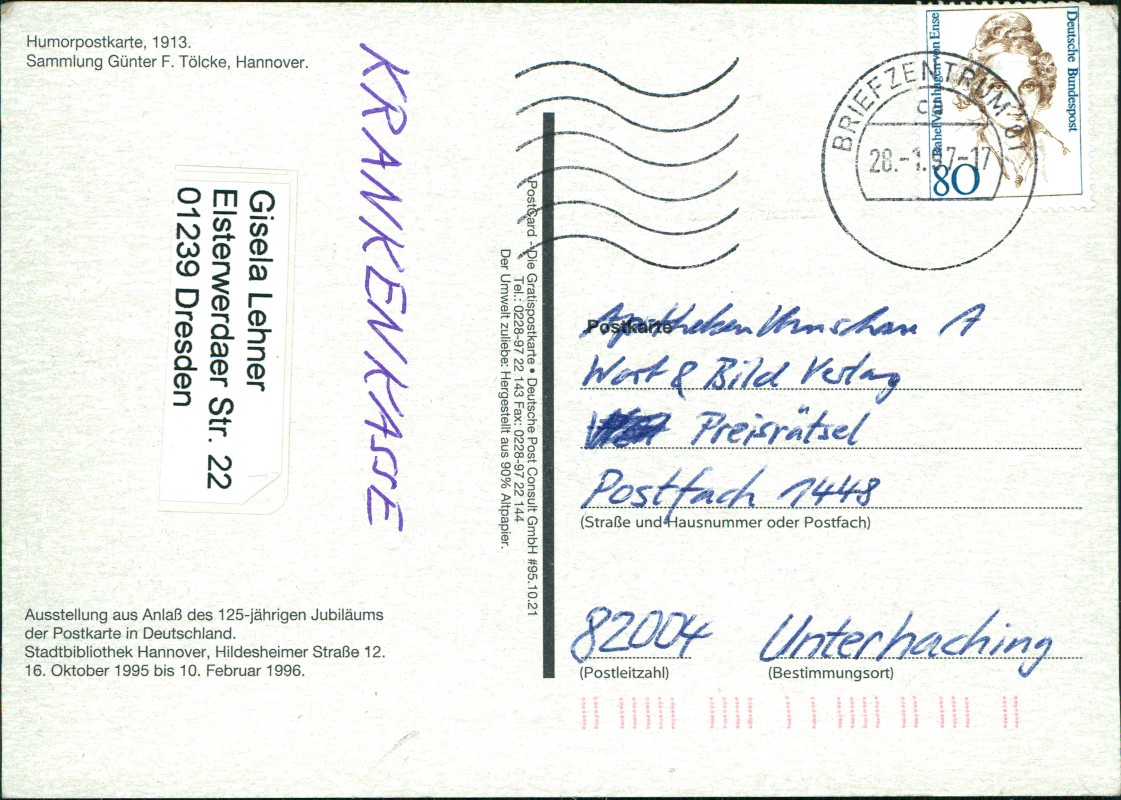 Humorpostkarte, 1913.
Sammlung Günter F. Tölcke, Hannover.
KRANKENKASSE
Gisela Lehner
Elsterwerdaer Str. 22
01239 Dresden
Ausstellung aus Anlaß des 125-jährigen Jubiläums
der Postkarte in Deutschland.
Stadtbibliothek Hannover, Hildesheimer Straße 12.
16. Oktober 1995 bis 10. Februar 1996.
PostCard - Die Gratispostkarte • Deutsche Post Consult GmbH #95.10.21
Tel.: 0228-97 22 143 Fax: 0228-97 22 144
Der Umwelt zuliebe: Hergestellt aus 90% Altpapier.
Deutsche Bundespost
Rahel Varnhagen von Ense
80
BRIEFZENTRUM 01
28.-1.97-17
Postkarte
Apotheken Umschau A
Wort & Bild Verlag
Preisrätsel
Postfach 1448
(Straße und Hausnummer oder Postfach)
82004 Unterhaching
(Postleitzahl) (Bestimmungsort)